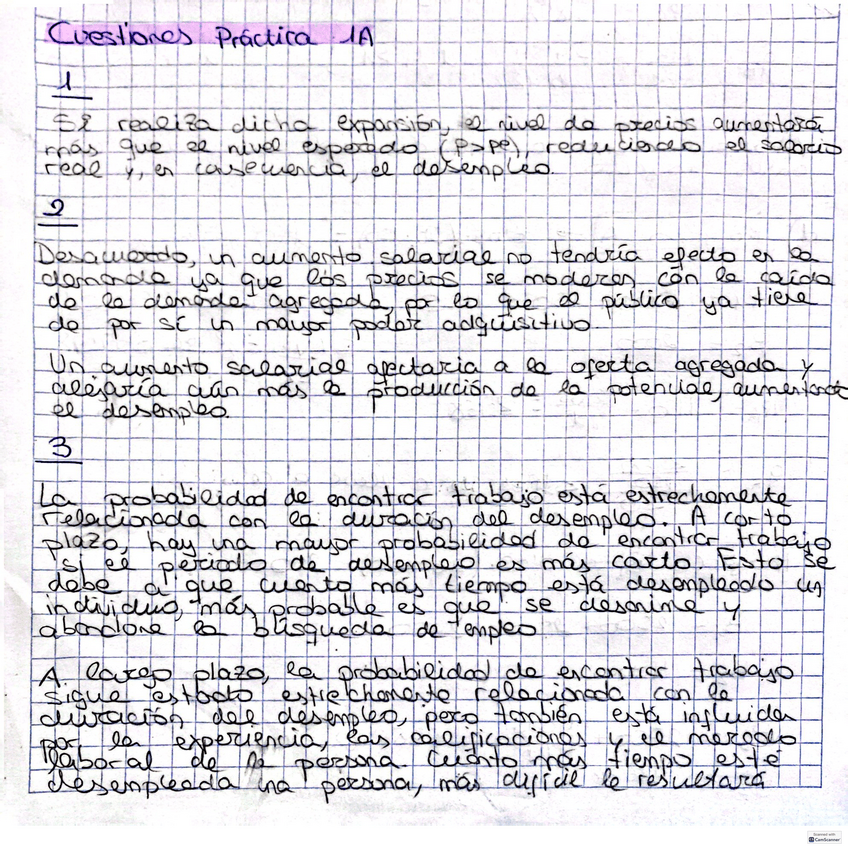 Cuestiones Práctica 1A
1
Si realiza dicha expansión, el nivel de precios aumentará
más que el nivel esperado (P>Pe), reduciendo el salario
real y, en consecuencia, el desempleo.
2
Desacuerdo, un aumento salarial no tendría efecto en la
demanda ya que los precios se moderan con la caída
de la demanda agregada, por lo que el público ya tiene
de por sí un mayor poder adquisitivo.
Un aumento salarial afectaria a la oferta agregada y
alejaría aún más la producción de la potencial, aumentando
el desempleo.
3
La probabilidad de encontrar trabajo está estrechamente
relacionada con la duración del desempleo. A corto
plazo, hay una mayor probabilidad de encontrar trabajo
si el periodo de desempleo es más corto. Esto se
debe a que cuanto más tiempo está desempleado un
individuo, más probable es que se desanime y
abandone la búsqueda de empleo
A largo plazo, la probabilidad de encontrar trabajo
sigue estando estrechamente relacionada con la
duración del desempleo, pero también está influida
por la experiencia, las calificaciones y el mercado
laboral de la persona. Cuánto más tiempo esté
desempleada una persona, más difícil le resultará
Scanned with
CamScanner